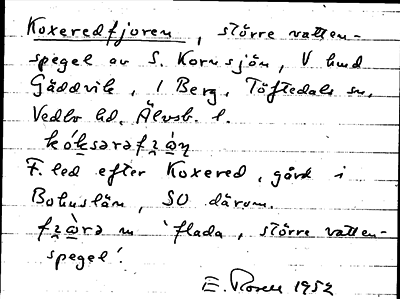 Koxeredfjoren, större vatten-
spegel av S. Kornsjön, V hmd
Gäddvik, 1 Berg, Töftedals sn,
Vedbo hd. Älvsb. l.
F. led efter Koxered, gård i
Bohuslän, SO därom.
m 'flada, större vatten-
spegel'.
E. 1952